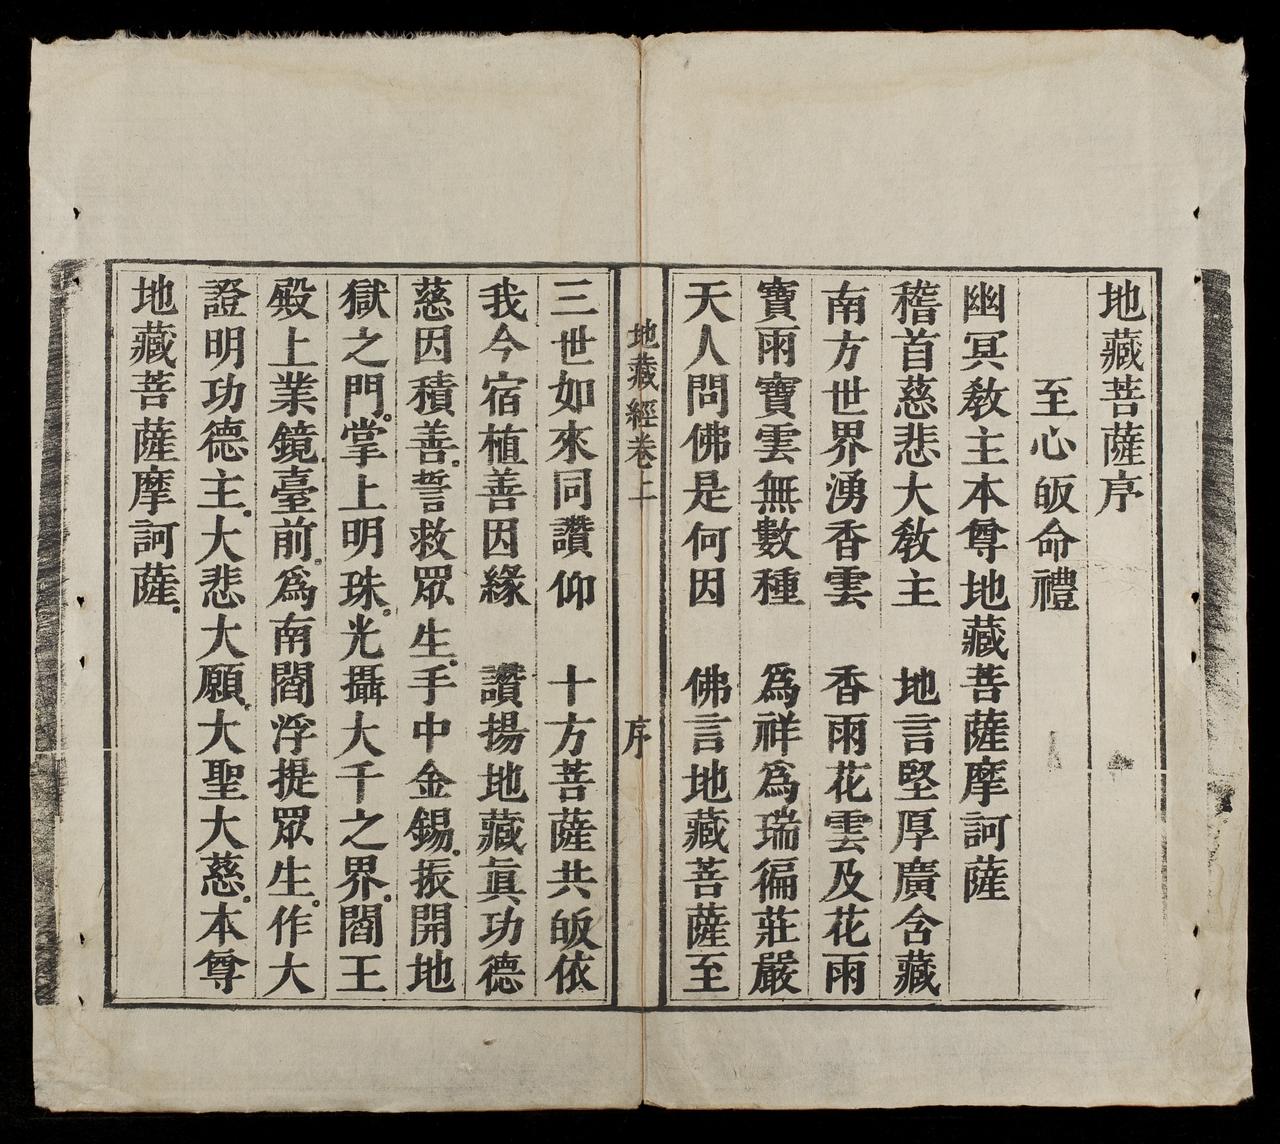 地藏菩薩序
至心皈命禮
幽冥敎主本尊地藏菩薩摩訶薩
稽首慈悲大敎主　地言堅厚廣含藏
南方世界湧香雲　香雨花雲及花雨
寶雨寶雲無數種　爲祥爲瑞徧莊嚴
天人問佛是何因　佛言地藏菩薩至
地藏經卷上　序
三世如來同讚仰　十方菩薩共皈依
我今宿植善因緣　讚揚地藏眞功德
慈因積善。誓救眾生。手中金錫。振開地
獄之門。掌上明珠。光攝大千之界。閻王
殿上業鏡。臺前。爲南閻浮提眾生。作大
證明功德主。大悲大願。大聖大慈。本尊
地藏菩薩摩訶薩。